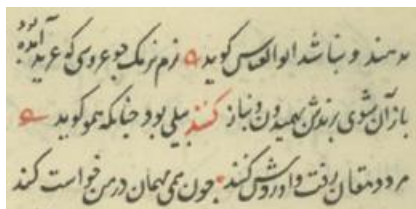 بدهند و بناشد ابوالعباس گوید ه نرم نرمک چو عروسی که غرید آمده بود
باز آن شوی برندش بهمیدون و نیاز کنند بیلی بود چنانکه همو گوید ه
مرد دهقان رفت و آوردش کنند چون همی مهمان در من خواست کند